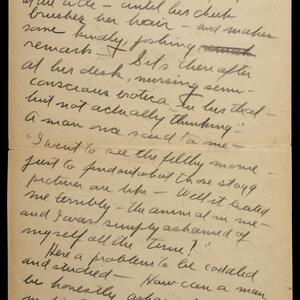 of the title — until his cheek
brushes her hair — and makes
some kindly, joshing
remark — Sits there after
at her desk, nursing semi-
conscious erotica in her that —
but not actually "thinking"
A man once said to me —
"I went to see the filthy movie —
just to find out what those stag
pictures are like — Well it heated
me terribly — the animal in me —
and I was simply ashamed of
myself all the time!"
Here a problem to be coddled
and studied — How can a man
be honestly